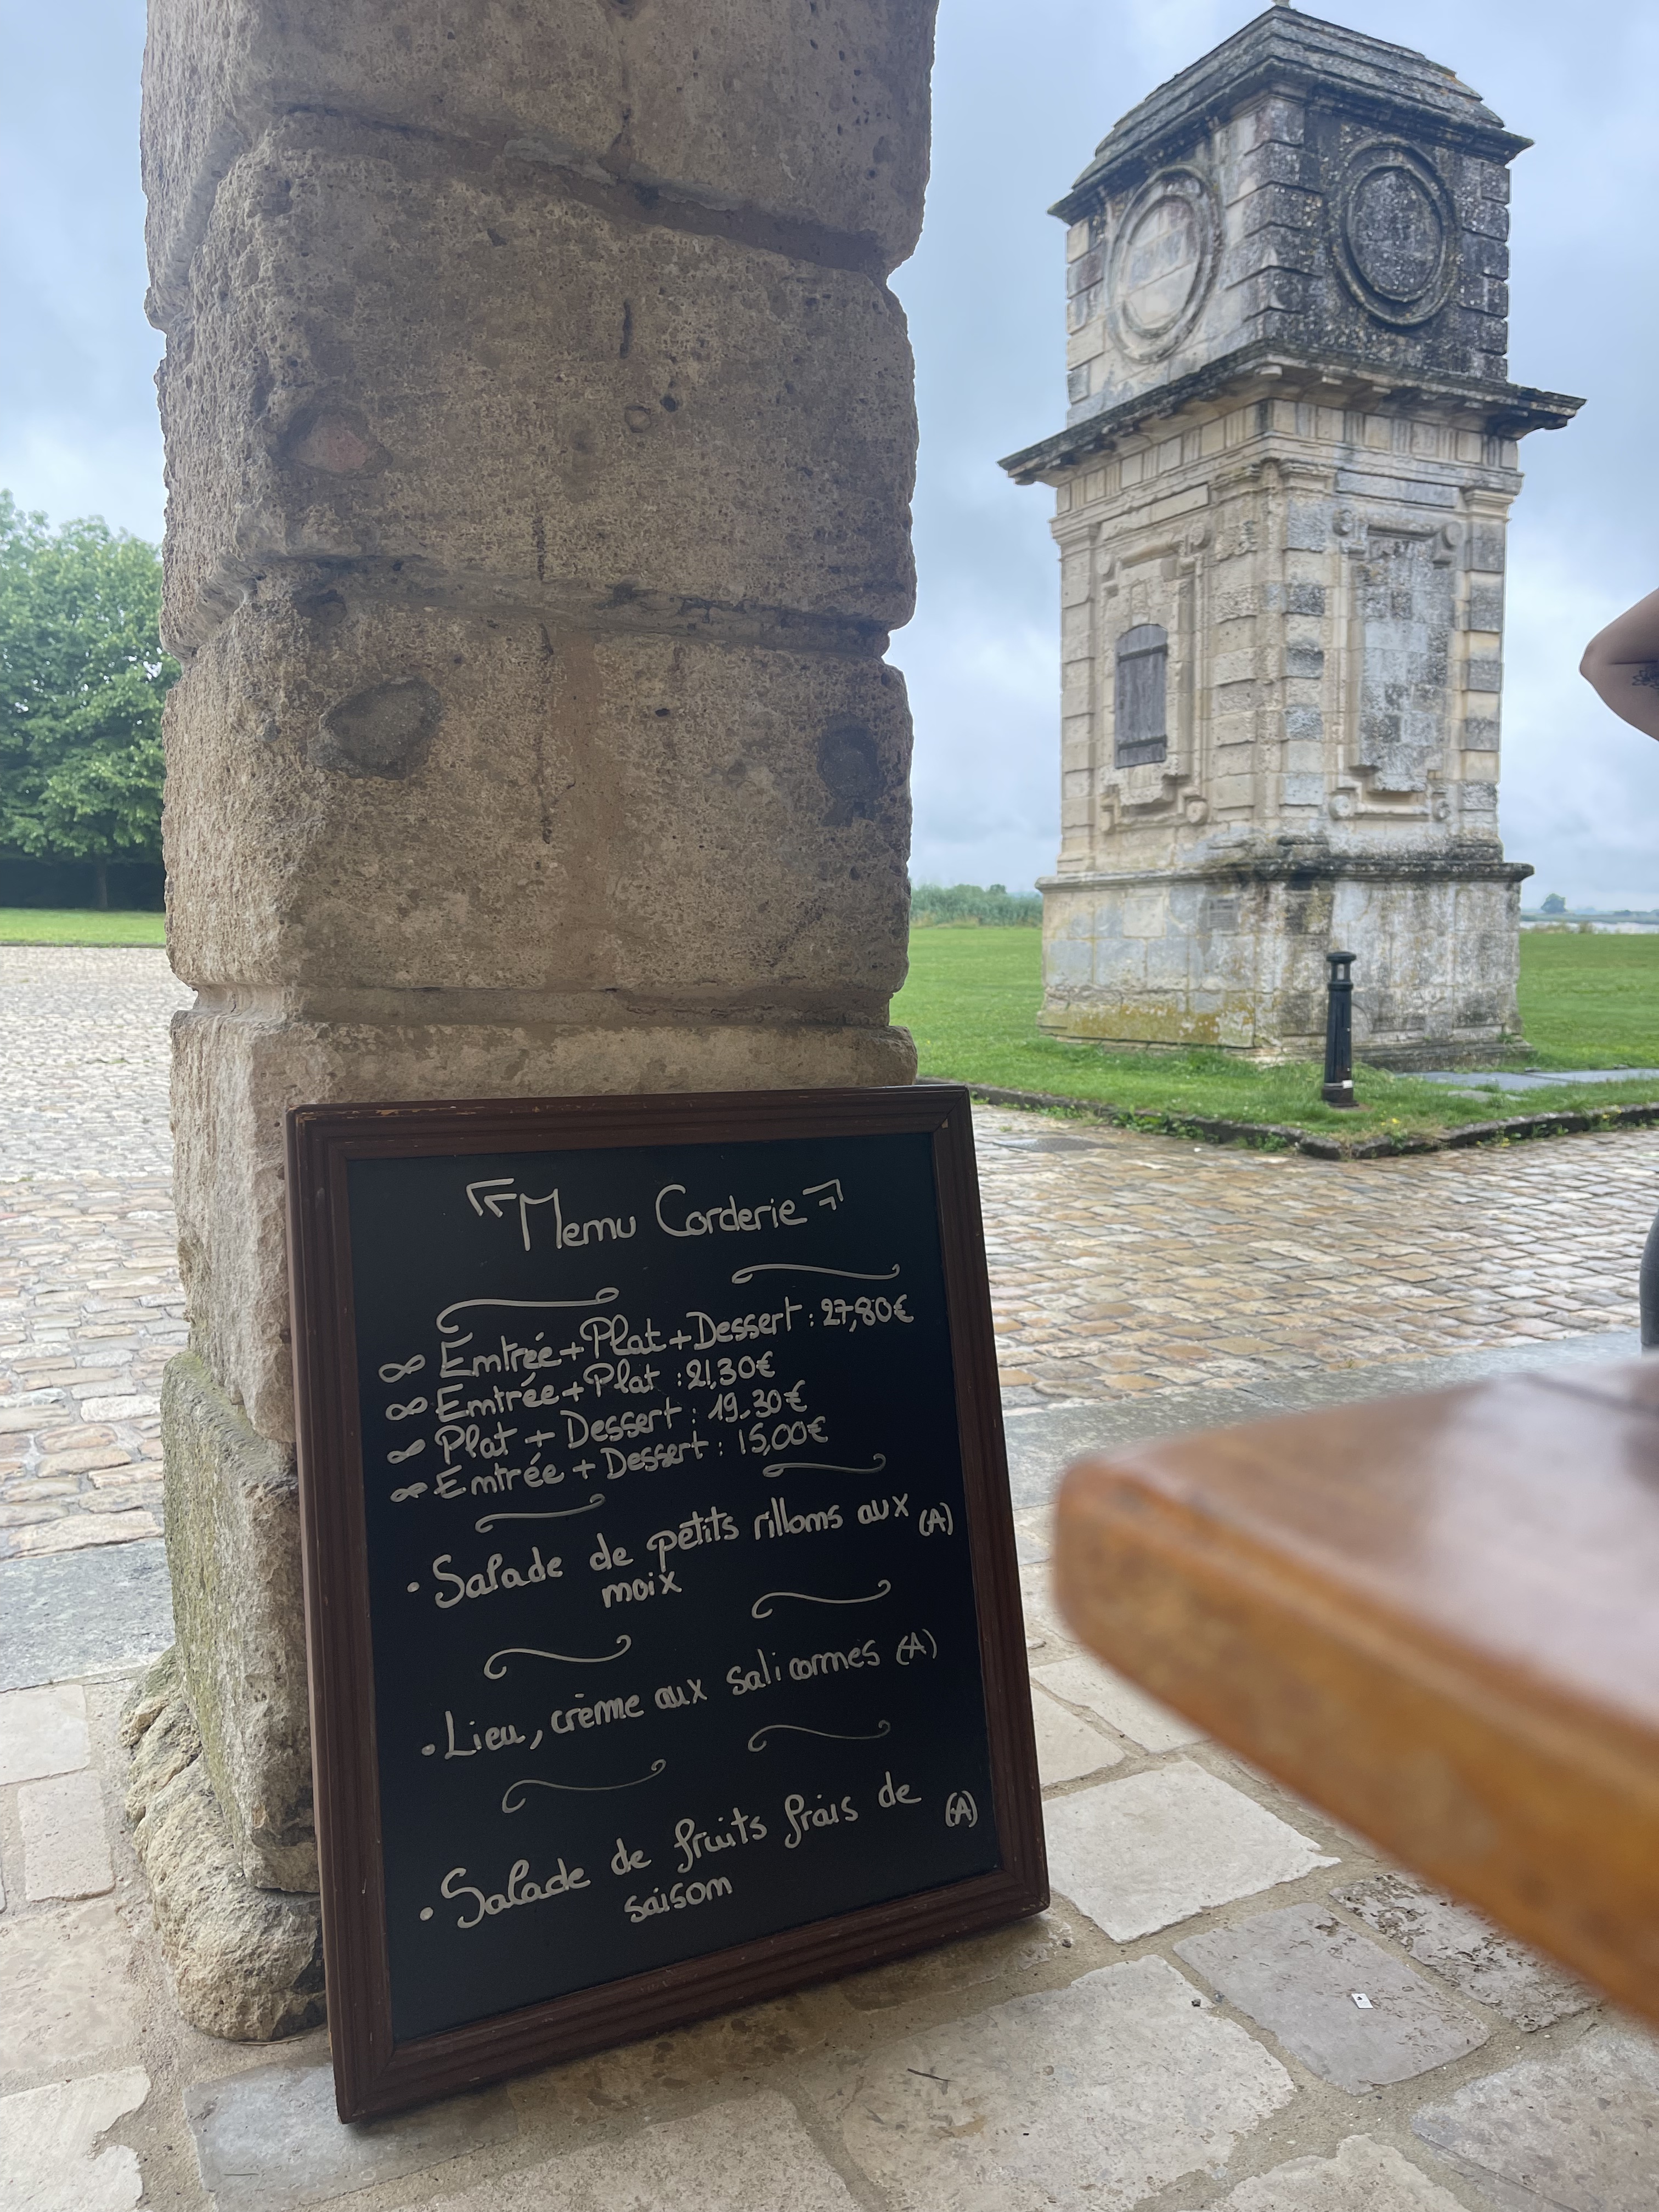 Menu Corderie
Entrée+Plat+Dessert : 27,80€
Entrée+Plat : 21,30€
Plat + Dessert : 19,30€
Entrée + Dessert : 15,00€
• Salade de petits rillons aux (A)
noix
• Lieu, crème aux salicornes (A)
• Salade de fruits frais de (A)
saison